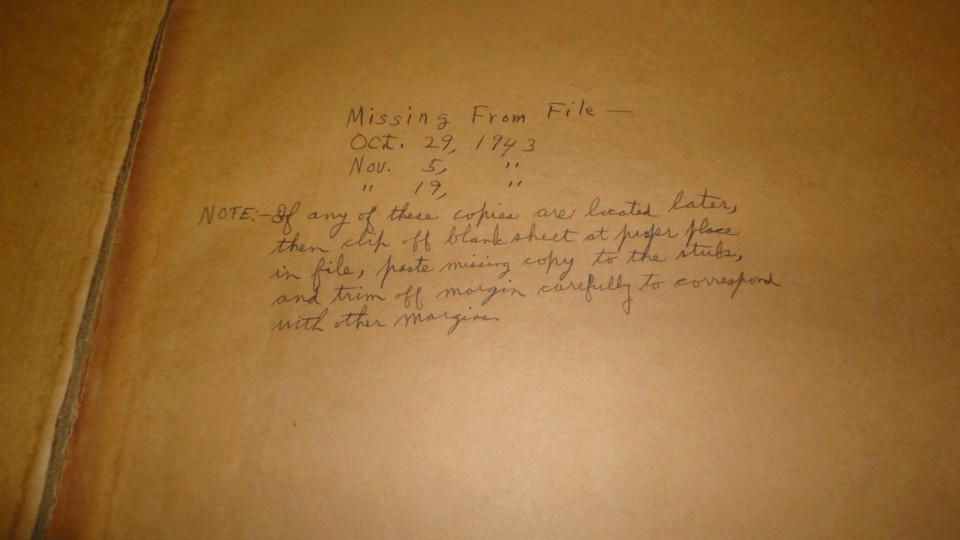 Missing From File —
Oct. 29, 1943
Nov. 5, "
" 19, "
NOTE:- If any of these copies are located later,
then clip off blank sheet at proper place
in file, paste missing copy to the stubs,
and trim off margin carefully to correspond
with other margins.